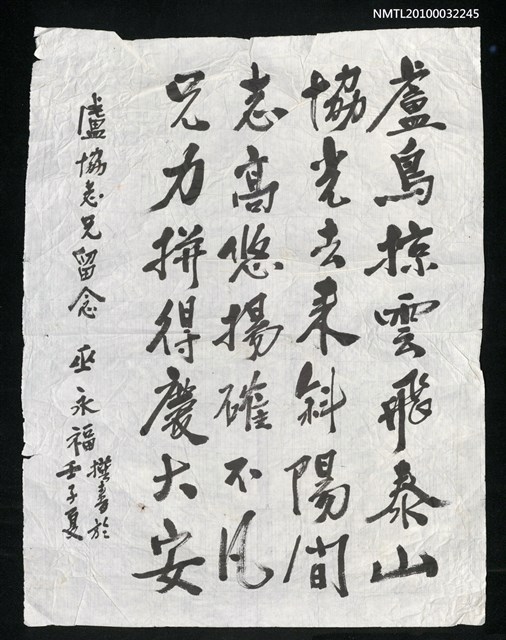 NMTL20100032245
盧鳥掠雲飛泰山
協光去來斜陽間
志高悠揚確不凡
兄力拼得慶大安
盧協志兄留念 巫永福撰書於
壬子夏